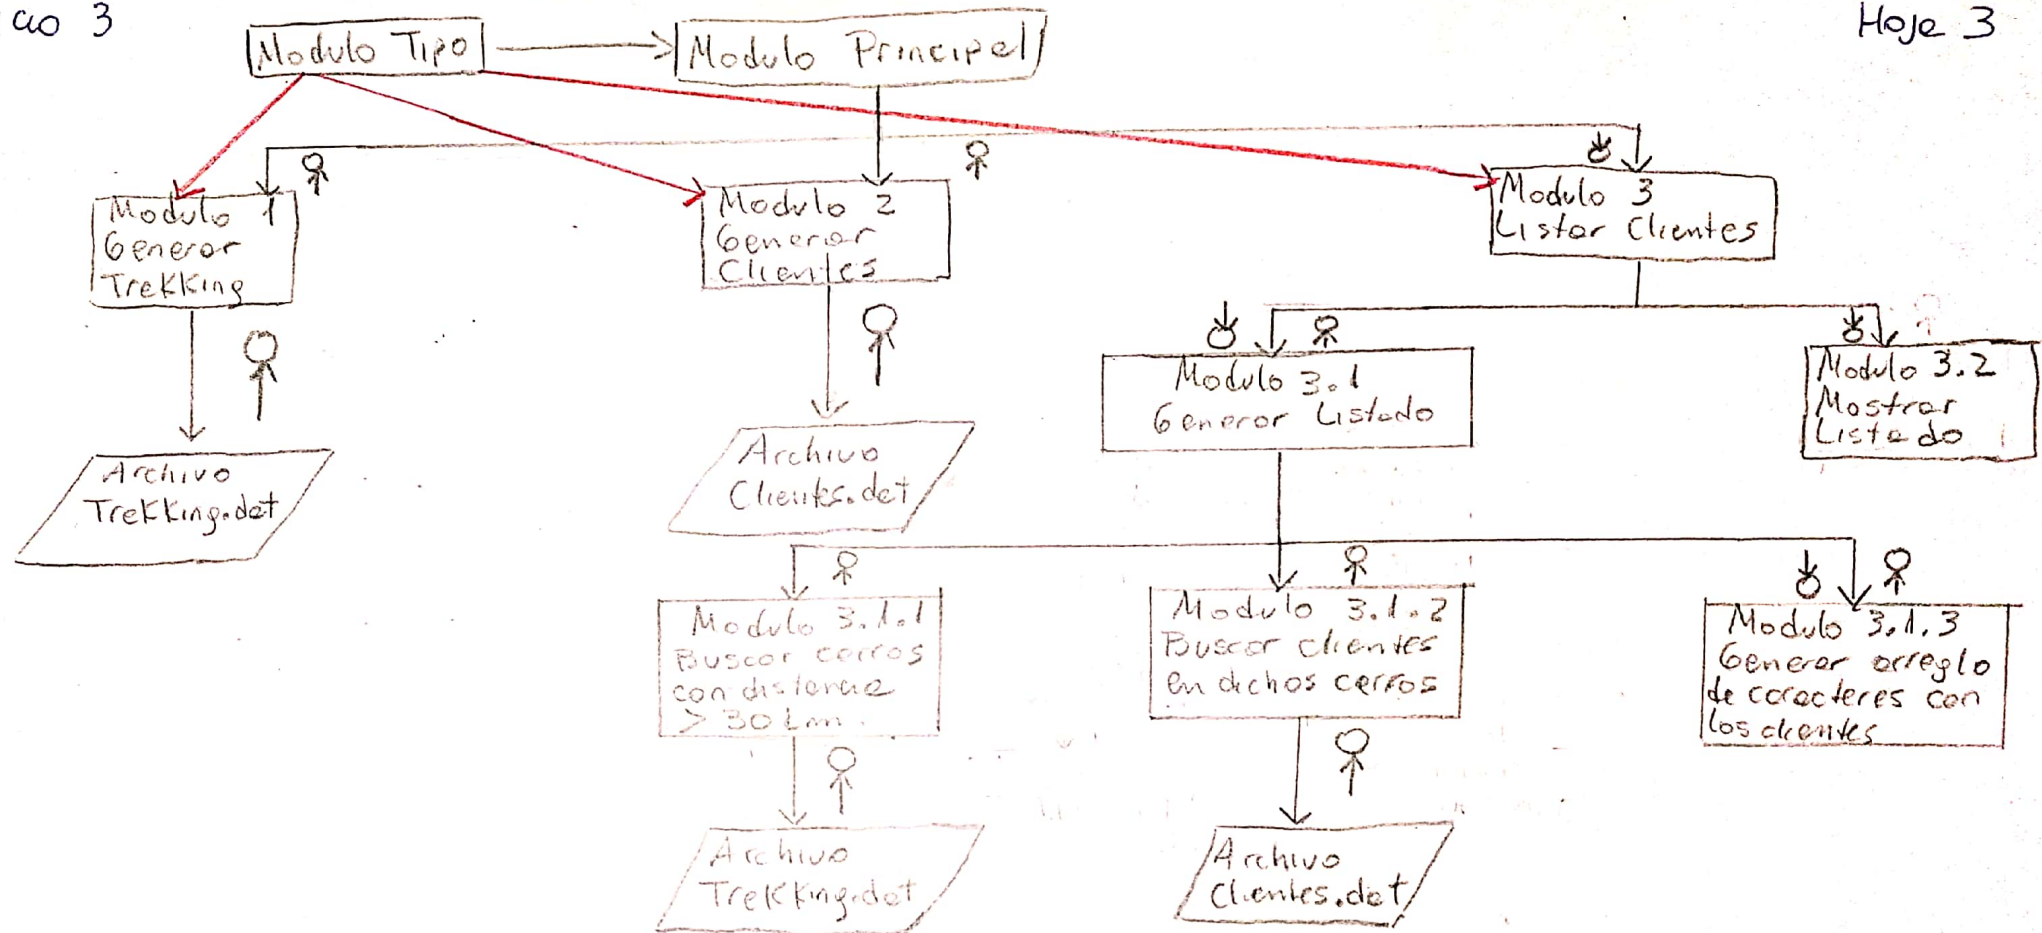 cio 3
Hoje 3
Modulo Tipo
Modulo Principal
Modulo 1
Generar
Trekking
Modulo 2
Generar
Clientes
Modulo 3
Listar Clientes
Modulo 3.1
Generar Listado
Modulo 3.2
Mostrar
Listado
Archivo
Trekking.dat
Archivo
Clientes.dat
Modulo 3.1.1
Buscar cerros
con distancia
> 30 km.
Modulo 3.1.2
Buscar clientes
en dichos cerros
Modulo 3.1.3
Generar arreglo
de caracteres con
los clientes
Archivo
Trekking.dat
Archivo
Clientes.dat